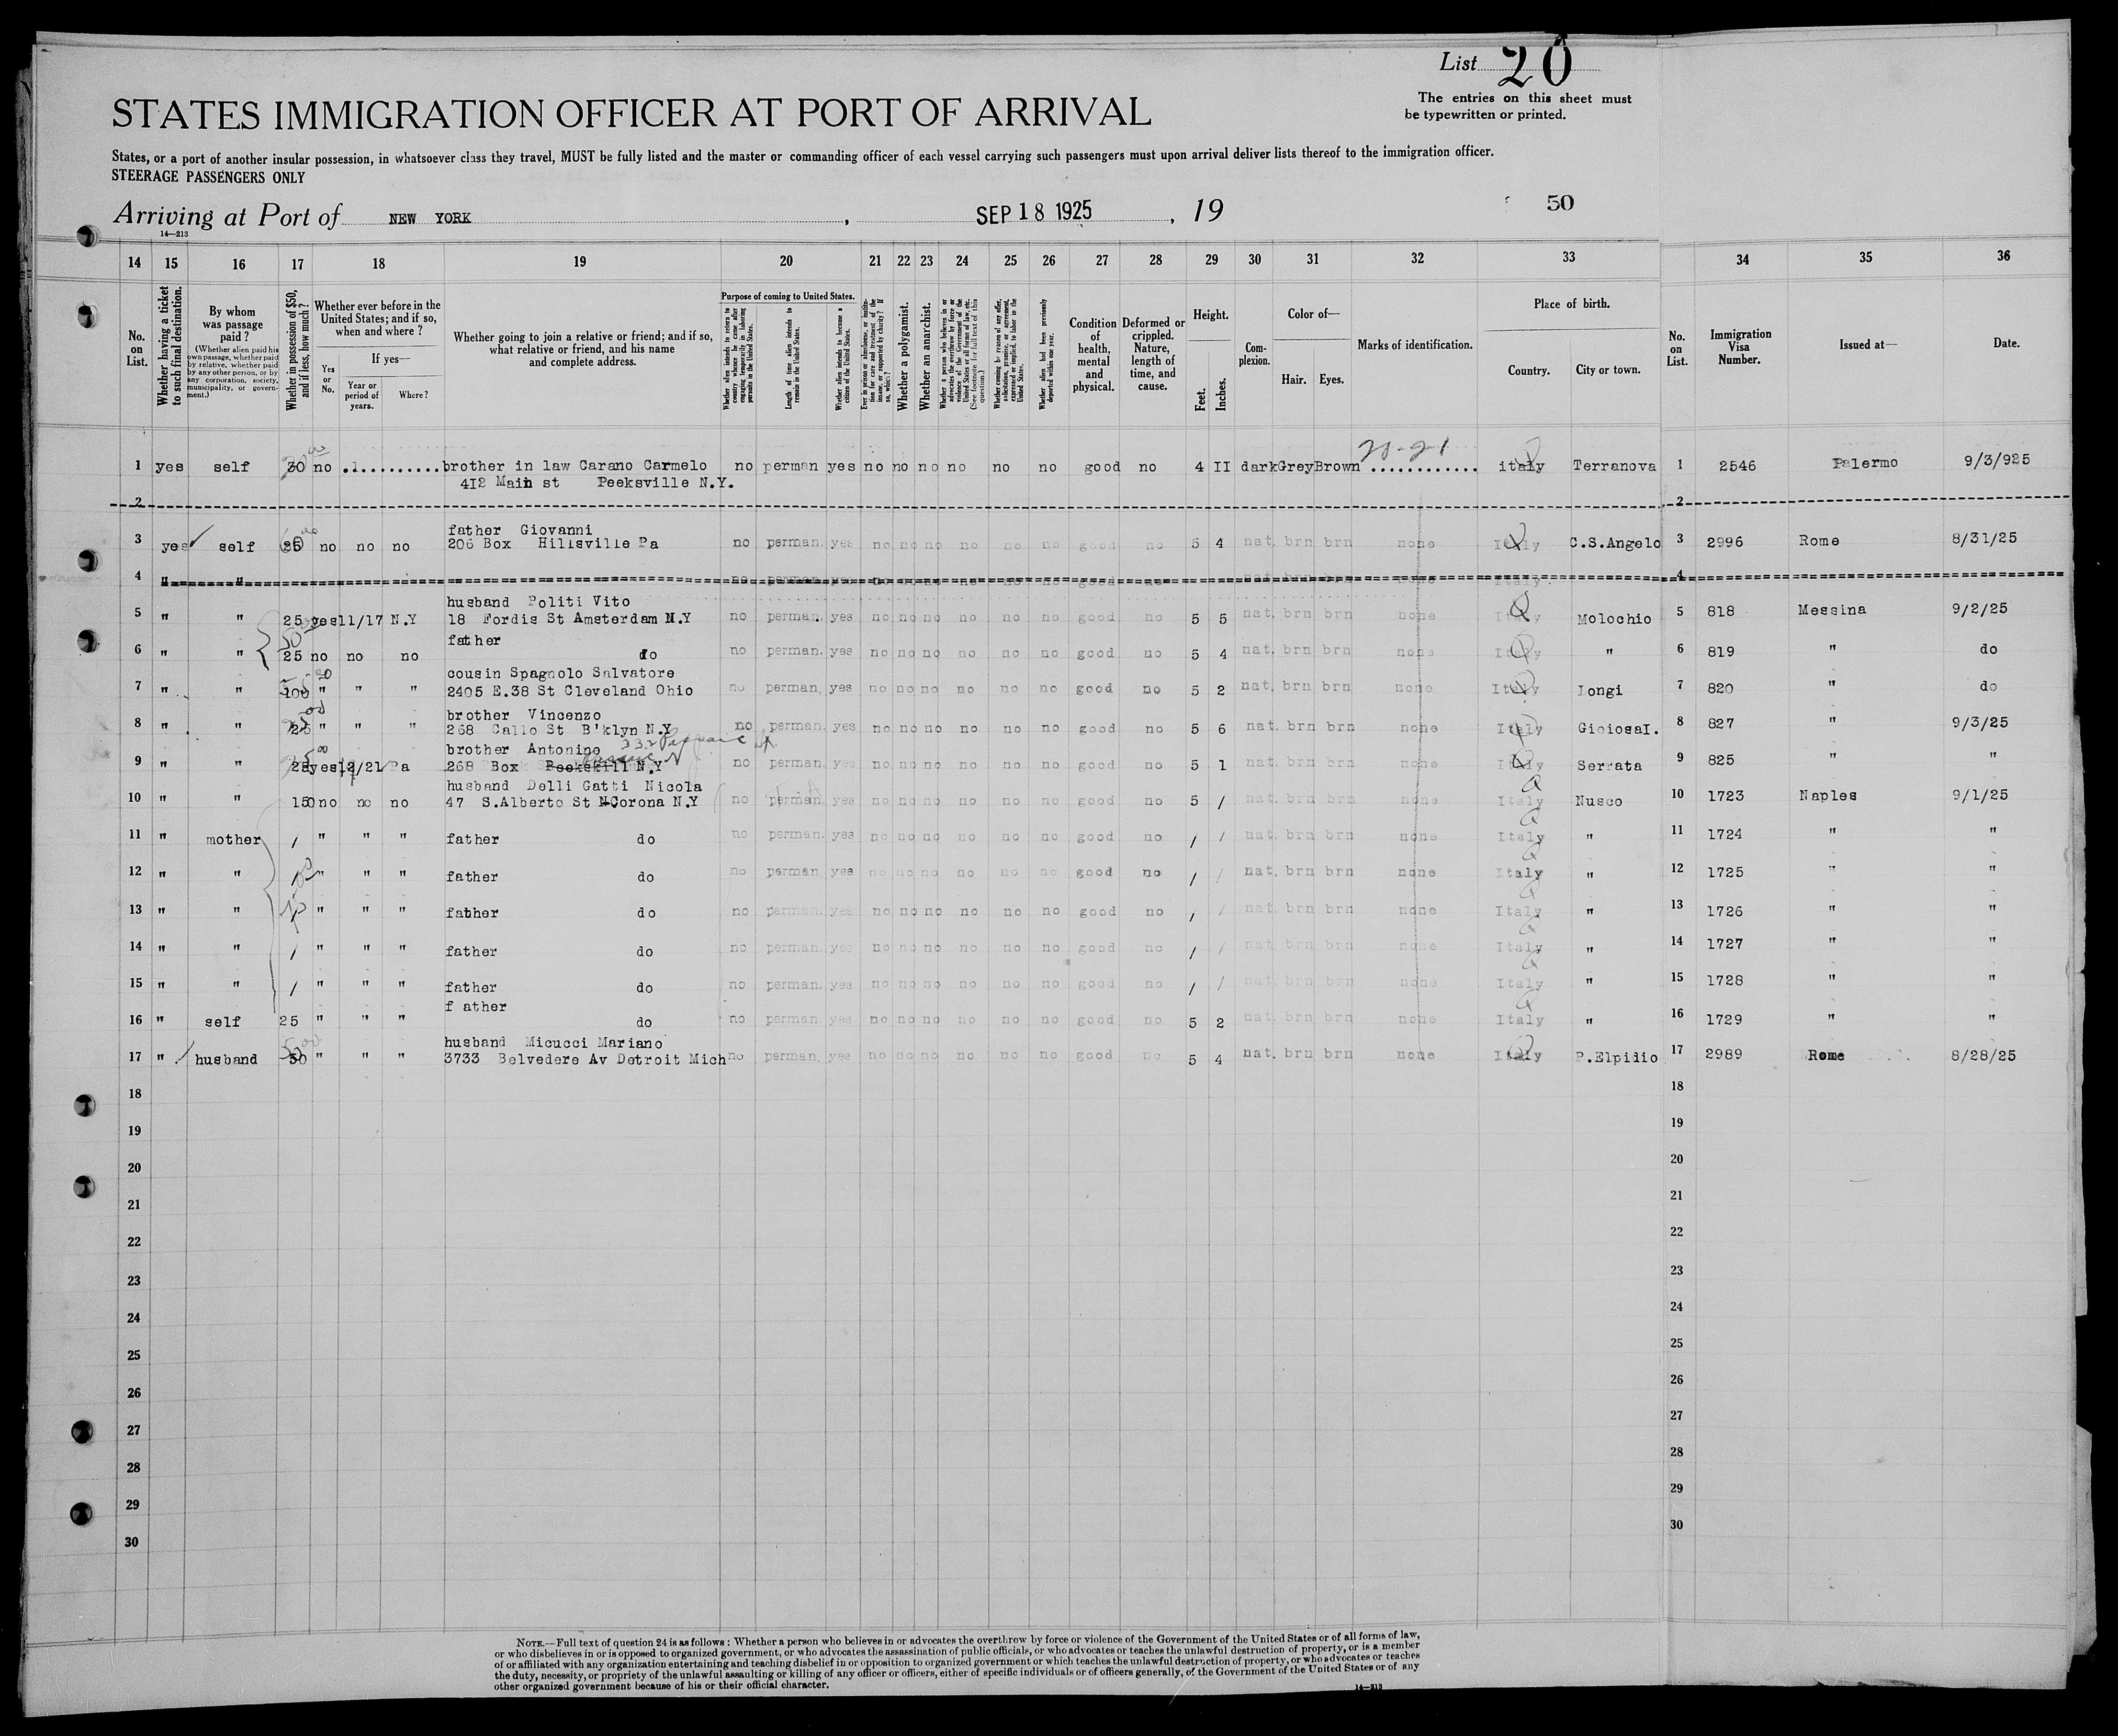 List 20
The entries on this sheet must
be typewritten or printed.
STATES IMMIGRATION OFFICER AT PORT OF ARRIVAL
States, or a port of another insular possession, in whatsoever class they travel, MUST be fully listed and the master or commanding officer of each vessel carrying such passengers must upon arrival deliver lists thereof to the immigration officer.
STEERAGE PASSENGERS ONLY
Arriving at Port of NEW YORK, SEP 18 1925, 19 50
14—213
14 15 16 17 18 19 20 21 22 23 24 25 26 27 28 29 30 31 32 33 34 35 36
No. on List.
Whether having a ticket to such final destination.
By whom was passage paid?
(Whether alien paid his own passage, whether paid by relative, whether paid by any other person, or by any corporation, society, municipality, or government.)
Whether in possession of $50, and if less, how much?
Whether ever before in the United States; and if so, when and where?
Yes or No.
If yes—
Year or period of years.
Where?
Whether going to join a relative or friend; and if so, what relative or friend, and his name and complete address.
Purpose of coming to United States.
Whether alien intends to return to country whence he came after engaging temporarily in laboring pursuits in the United States.
Length of time alien intends to remain in the United States.
Whether alien intends to become a citizen of the United States.
Ever in prison or almshouse, or institution for care and treatment of the insane, or supported by charity? If so, which?
Whether a polygamist.
Whether an anarchist.
Whether a person who believes in or advocates the overthrow by force or violence of the Government of the United States or all forms of law, etc. (See footnote for full text of this question.)
Whether coming by reason of any offer, solicitation, promise, or agreement, expressed or implied, to labor in the United States.
Whether alien had been previously deported within one year.
Condition of health, mental and physical.
Deformed or crippled. Nature, length of time, and cause.
Height.
Feet. Inches.
Complexion.
Color of—
Hair. Eyes.
Marks of identification.
Place of birth.
Country. City or town.
No. on List.
Immigration Visa Number.
Issued at—
Date.
1 yes self 30 no brother in law Carano Carmelo no perman yes no no no no no no good no 4 II dark Grey Brown ............ italy Terranova 1 2546 Palermo 9/3/925
412 Main st Peeksville N.Y.
2 2
father Giovanni
3 yes self 25 no no no 206 Box Hillsville Pa no perman. yes no no no no no no good no 5 4 nat. brn brn none Italy C.S.Angelo 3 2996 Rome 8/31/25
4 " " no perman yes no no no no no no good no nat. brn brn none Italy 4
husband Politi Vito
5 " " 25 yes 11/17 N.Y 18 Fordis St Amsterdam N.Y no perman. yes no no no no no no good no 5 5 nat. brn brn none Italy Molochio 5 818 Messina 9/2/25
father
6 " " 25 no no no do no perman. yes no no no no no no good no 5 4 nat. brn brn none Italy " 6 819 " do
cousin Spagnolo Salvatore
7 " " 100 " " " 2405 E.38 St Cleveland Ohio no perman. yes no no no no no no good no 5 2 nat. brn brn none Italy Iongi 7 820 " do
brother Vincenzo
8 " " 25 " " " 268 Callo St B'klyn N.Y no perman. yes no no no no no no good no 5 6 nat. brn brn none Italy GioiosaI. 8 827 " 9/3/25
brother Antonino
9 " " 28 yes 12/21 Pa 268 Box Peekskill N.Y no perman. yes no no no no no no good no 5 1 nat. brn brn none Italy Serrata 9 825 " "
husband Delli Gatti Nicola
10 " " 150 no no no 47 S.Alberto St Corona N.Y no perman. yes no no no no no no good no 5 / nat. brn brn none Italy Nusco 10 1723 Naples 9/1/25
11 " mother / " " " father do no perman. yes no no no no no no good no / / nat. brn brn none Italy " 11 1724 " "
12 " " / " " " father do no perman yes no no no no no no good no / / nat. brn brn none Italy " 12 1725 " "
13 " " / " " " father do no perman. yes no no no no no no good no / / nat. brn brn none Italy " 13 1726 " "
14 " " / " " " father do no perman. yes no no no no no no good no / / nat. brn brn none Italy " 14 1727 " "
15 " " / " " " father do no perman. yes no no no no no no good no / / nat. brn brn none Italy " 15 1728 " "
f ather
16 " self 25 " " " do no perman. yes no no no no no no good no 5 2 nat. brn brn none Italy " 16 1729 " "
husband Micucci Mariano
17 " husband 50 " " " 3733 Belvedere Av Detroit Mich no perman. yes no no no no no no good no 5 4 nat. brn brn none Italy P.Elpidio 17 2989 Rome 8/28/25
18 18
19 19
20 20
21 21
22 22
23 23
24 24
25 25
26 26
27 27
28 28
29 29
30 30
NOTE.—Full text of question 24 is as follows: Whether a person who believes in or advocates the overthrow by force or violence of the Government of the United States or of all forms of law,
or who disbelieves in or is opposed to organized government, or who advocates the assassination of public officials, or who advocates or teaches the unlawful destruction of property, or is a member
of or affiliated with any organization entertaining and teaching disbelief in or opposition to organized government or which teaches the unlawful destruction of property, or who advocates or teaches
the duty, necessity, or propriety of the unlawful assaulting or killing of any officer or officers, either of specific individuals or of officers generally, of the Government of the United States or of any
other organized government because of his or their official character.
14—213